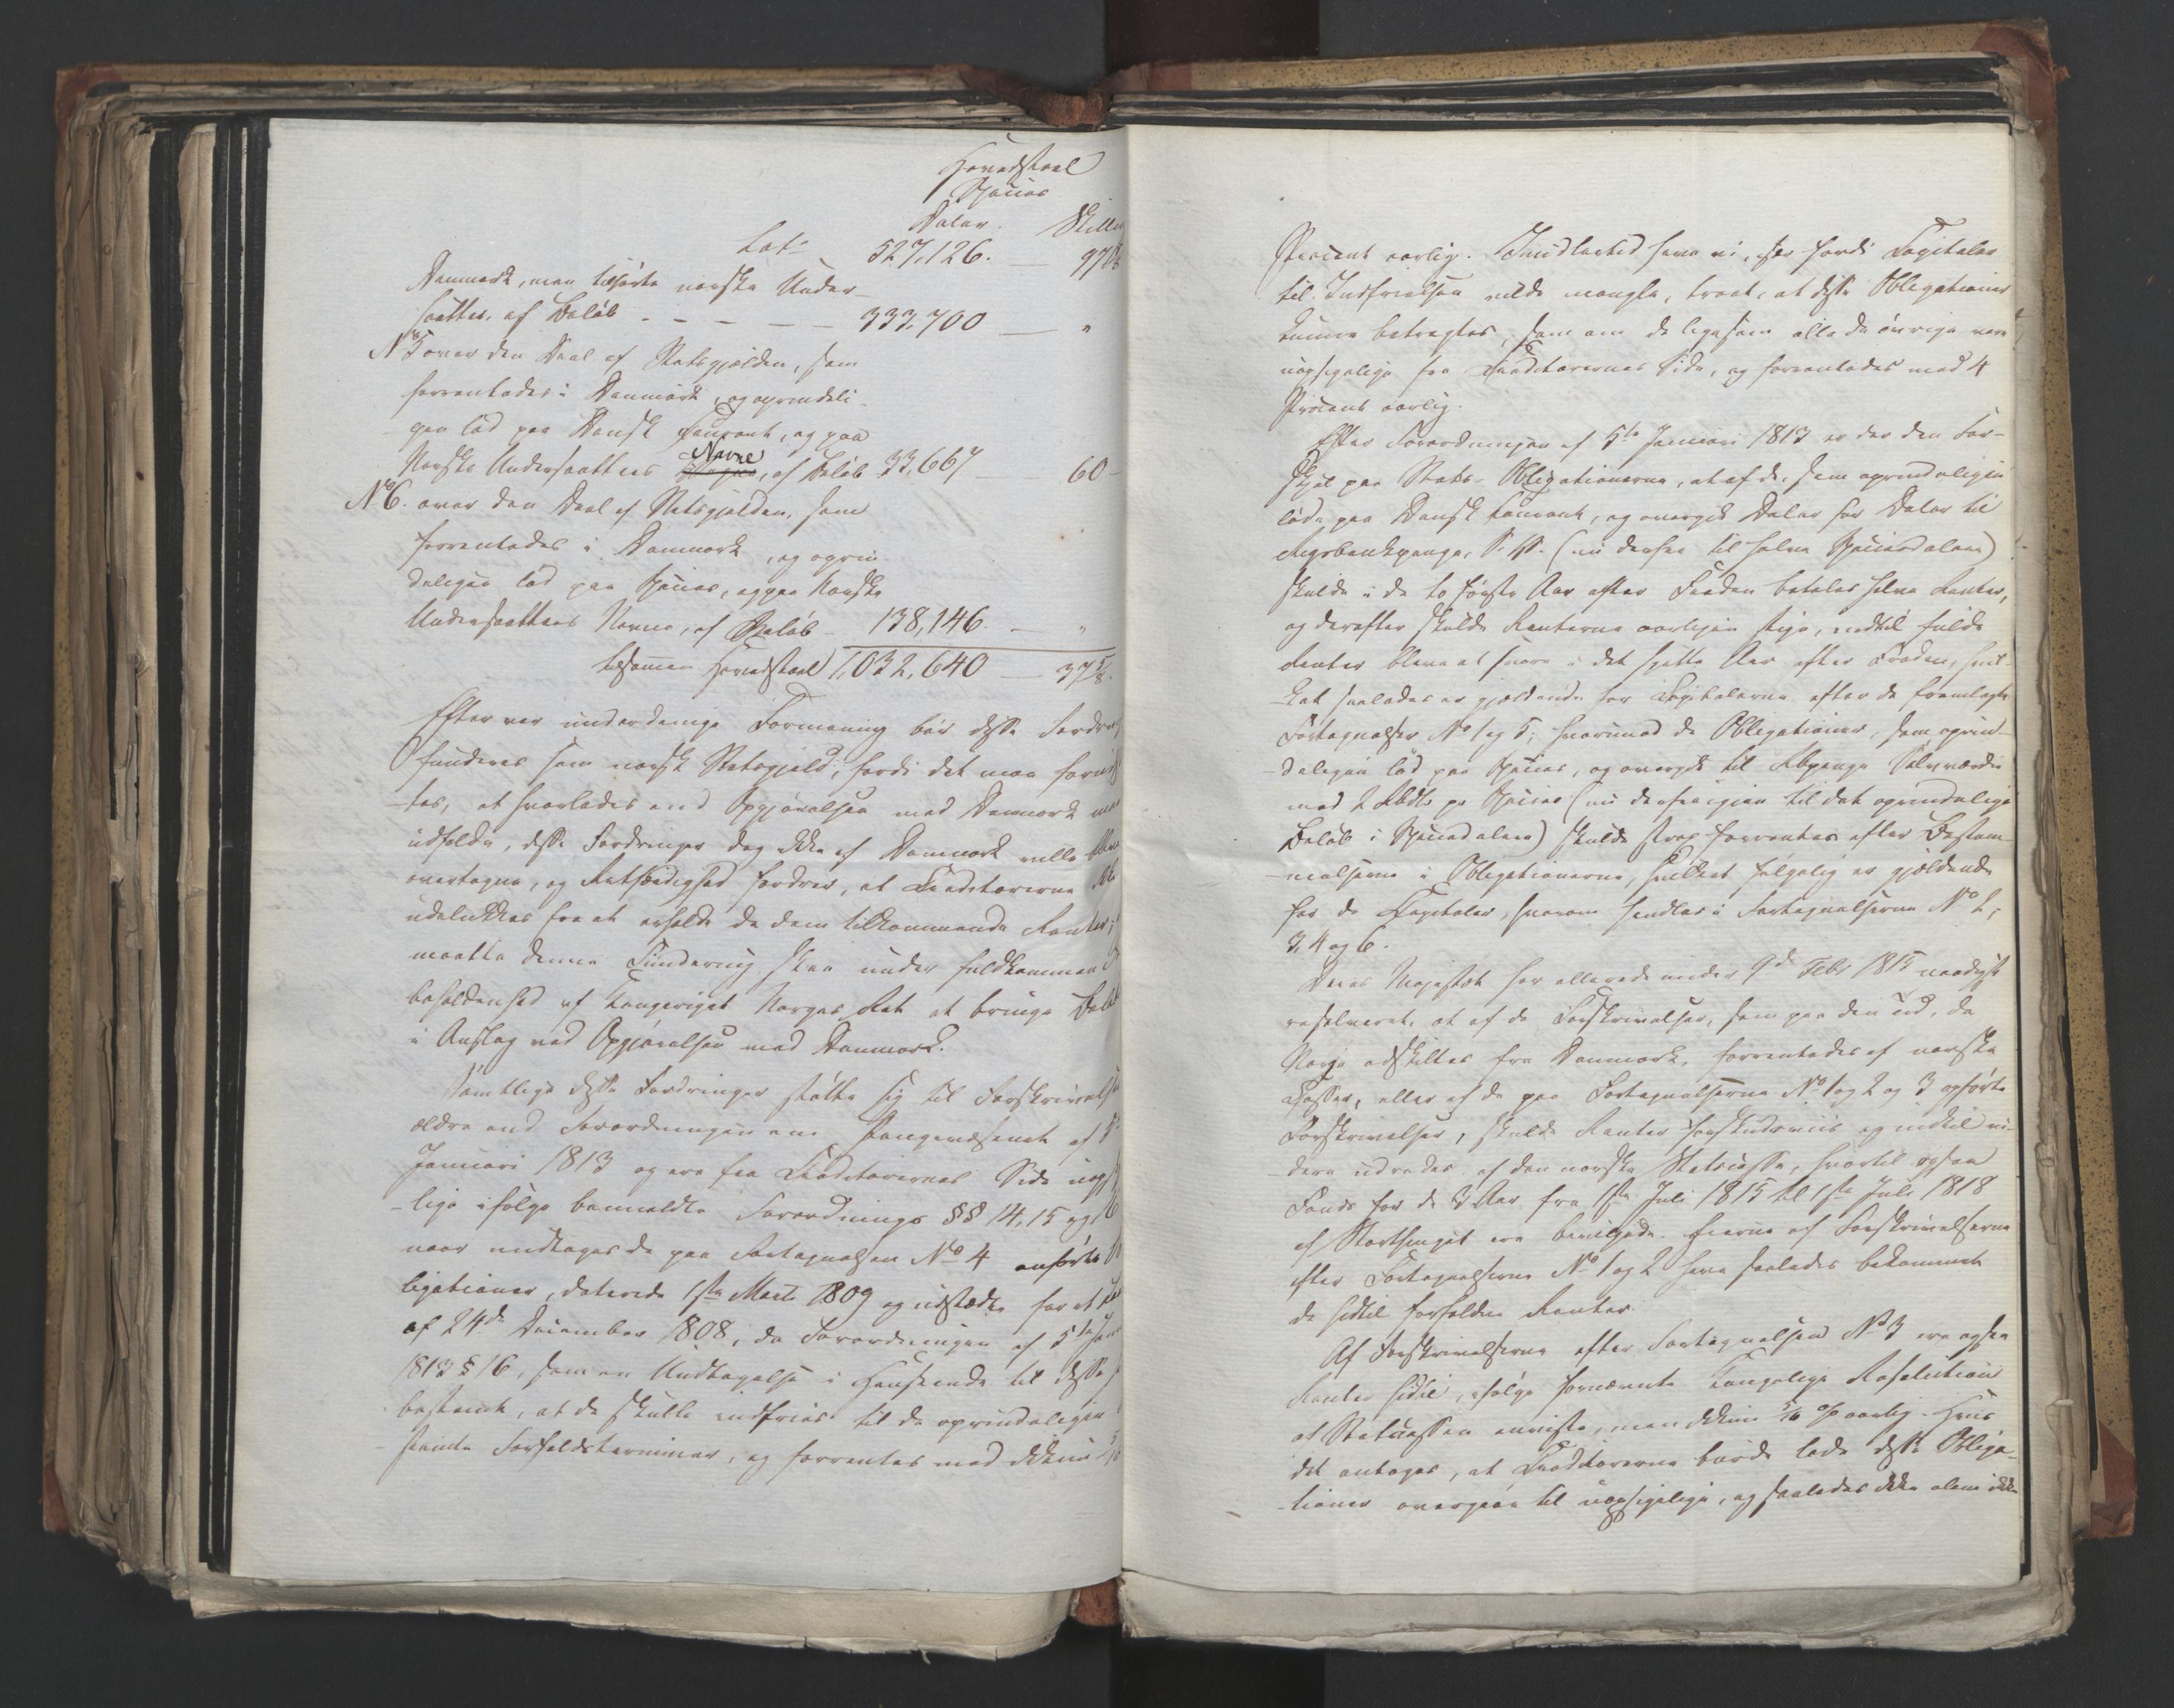 Hovedstoel
Species
Daler. Skilling
Lat. 527,126. — 97
Danmark, men tilhørte norske Under-
saatter, af Beløb - - - - 333,700 — "
No 5 over den Deel af Statsgjelden, som
forrentedes i Danmark, og oprindeli-
gen lød paa Dansk Courant, og paa
Norske Undersaatters Navne, af Beløb 33,667 — 60 -
No 6. over den Deel af Statsgjelden, som
forrentedes i Danmark, og oprin-
deligen lød paa Species, og paa Norske
Undersaatters Navne, af Beløb - 138,146. — "
tilsammen Hovedstoel 1,032,640 — 37 5/8.
Efter vor underdanige Formening bør disse Fordringer
funderes som norsk Statsgjeld; fordi det maa forud
-tes, at hvorledes end Opgjørelsen med Danmark maa
udfalde, disse Fordringer dog ikke af Danmark ville blive
overtagne, og Retfærdighed fordrer, at Creditorerne ikke
udelukkes fra at erholde de dem tilkommende Renter;
maatte denne Fundering skee under fuldkommen
beholdenhed af Kongeriget Norges Ret at bringe Beløbet
i Anslag ved Opgjørelsen med Danmark.
Samtlige disse Fordringer støtte sig til Forskrivelser
ældre end Forordningen om Pengevæsenet af 5te
Januari 1813 og ere fra Creditorernes Side uopsi
-lige ifølge bemeldte Forordnings §§ 14, 15 og 16
naar undtages de paa Fortegnelsen No 4 anførte Ob
ligationer, daterede 1ste Marts 1809 og udstædte for et Laan
af 24de December 1808, da Forordningen af 5te Janu
1813 § 16, som en Undtagelse i Henseende til disse
bestemt, at de skulle indfries til de oprindeligen
stemte Forfaldsterminer, og forrentes med ikkun
Procent aarlig. Imidlertid have vi, især fordi Capitaler
til Indfrielsen vilde mangle, troet, at disse Obligationer
kunne betragtes, som om de ligesom alle de øvrige vare
uopsigelige fra Creditorernes Side, og forrentedes med 4
Procent aarlig.
Efter Forordningen af 5te Januari 1813 er der den For-
skjel paa Stats-Obligationerne, at af de, som oprindeligen
løde paa Dansk Courant, og overgik Daler for Daler til
Rigsbankpenge, S. V. (nu derfra til halve Speciesdalere)
skulde i de to første Aar efter Freden betales halve Renter,
og derefter skulde Renterne aarligen stige, indtil fulde
Renter bleve at svare i det sjette Aar efter Freden, hvil-
-ket saaledes er gjeldende for Capitalerne efter de fremlagte
Fortegnelser No 1 og 5; hvorimod de Obligationer, som oprin-
-deligen lød paa Species, og overgik til Rbpenge Sølvværdie
med 2 Rbdlr pr Species (nu derfra igien til det oprindelige
Beløb i Speciesdalere) skulde strax forrentes efter Bestem-
-melserne i Obligationerne, hvilket følgelig er gjeldende
for de Capitaler, hvorom handles i Fortegnelserne No 2,
3, 4 og 6.
Deres Majestæt har allerede under 9de Febr 1815 naadigst
resolveret, at af de Forskrivelser, som paa den Tid, da
Norge adskiltes fra Danmark, forrentedes af norske
Casser, eller af de paa Fortegnelserne No 1 og 2 og 3 opførte
Forskrivelser, skulde Renter forskudsviis og indtil vi-
-dere udredes af den norske Statscasse, hvortil ogsaa
Fonds for de 3 Aar fra 1ste Juli 1815 til 1ste Juli 1818
af Storthinget ere bevilgede. Eierne af Forskrivelserne
efter Fortegnelserne No 1 og 2 have saaledes bekommet
de hidtil forfaldne Renter.
Af Forskrivelserne efter Fortegnelsen No 3 ere ogsaa
Renter hidtil, ifølge fornævnte Kongelige Resolution
af Statscassen anviste, men ikkun 5/16 % aarlig. Hvis
det antages, at Creditorerne burde lade disse Obliga-
-tioner overgaae til uopsigelige, og saaledes ikke alene ikke